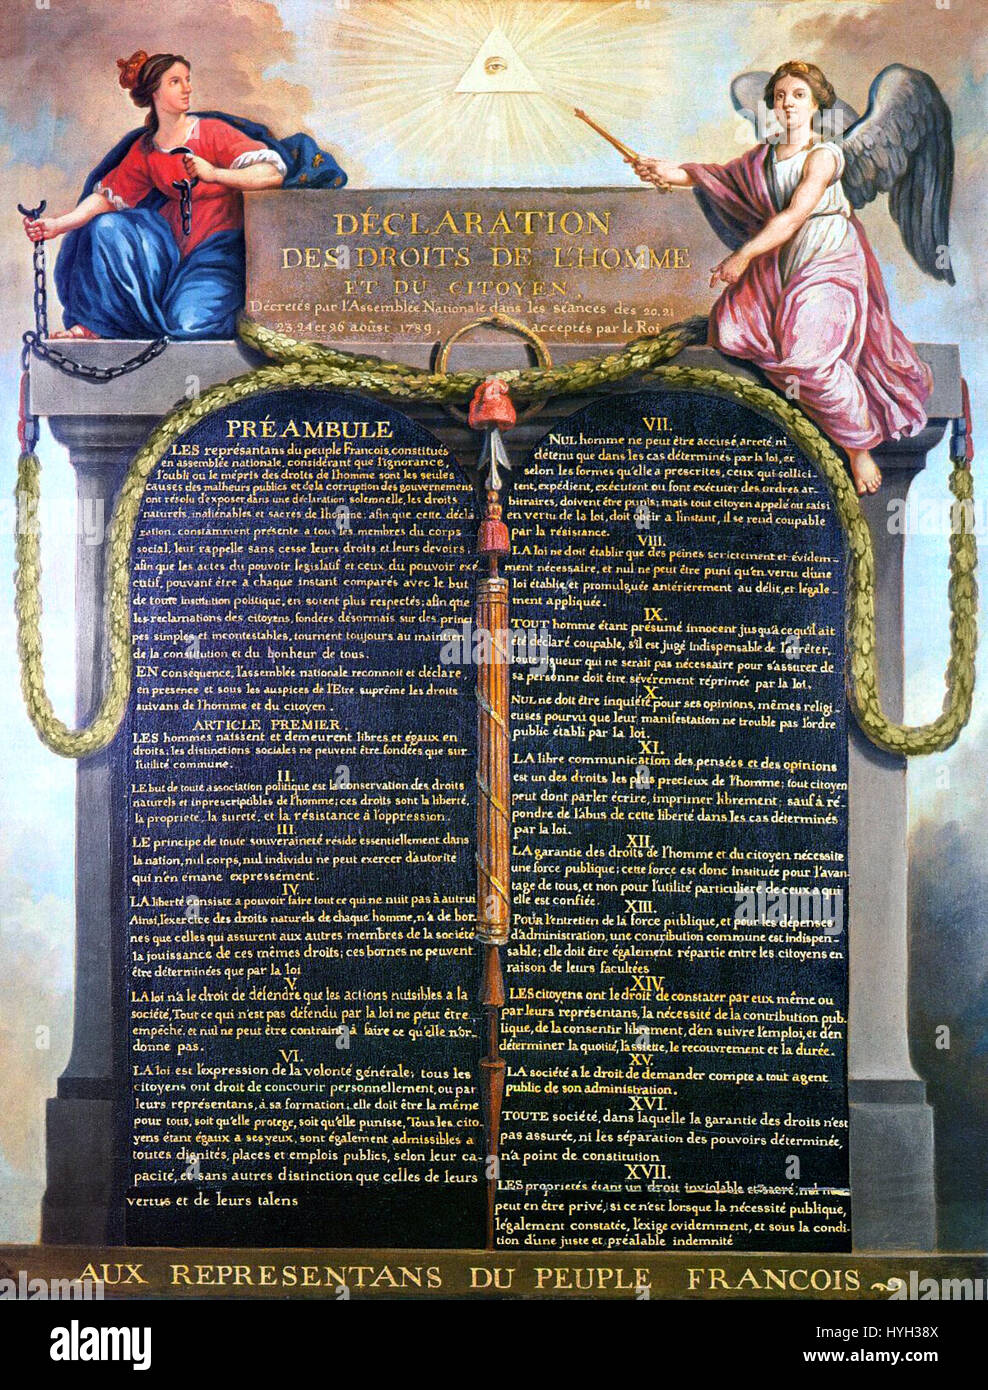 DÉCLARATION
DES DROITS DE L'HOMME
ET DU CITOYEN,
Décretés par l'Assemblée Nationale dans les séances des 20. 21
23. 24 et 26 aoûst 1789, acceptés par le Roi
PRÉAMBULE
LES représantans du peuple Francois, constitués
en assemblée nationale, considérant que l'ignorance,
l'oubli ou le mépris des droits de l'homme sont les seules
causes des malheurs publics et de la corruption des gouvernemens
ont résolu d'exposer, dans une déclaration solemnelle, les droits
naturels, inaliénables et sacrés de l'homme; afin que cette décla
ration, constamment présente a tous les membres du corps
social, leur rappelle sans cesse leurs droits et leurs devoirs;
afin que les actes du pouvoir législatif et ceux du pouvoir exé
cutif, pouvant être a chaque instant comparés avec le but
de toute institution politique, en soient plus respectés; afin que
les reclamations des citoyens, fondées désormais sur des princi
pes simples et incontestables, tournent toujours au maintien
de la constitution et du bonheur de tous.
EN conséquence, l'assemblée nationale reconnoit et déclare
en presence et sous les auspices de l'Etre suprême les droits
suivans de l'homme et du citoyen.
ARTICLE PREMIER.
LES hommes naissent et demeurent libres et égaux en
droits; les distinctions sociales ne peuvent être fondées que sur
l'utilité commune.
II.
LE but de toute association politique est la conservation des droits
naturels et inprescriptibles de l'homme; ces droits sont la liberté,
la propriete, la sureté, et la résistance à l'oppression.
III.
LE principe de toute souveraineté réside essentiellement dans
la nation, nul corps, nul individu ne peut exercer d'autorité
qui n'en émane expressement.
IV.
LA liberté consiste a pouvoir faire tout ce qui ne nuit pas à autrui
Ainsi, l'exercice des droits naturels de chaque homme, n'a de bor-
nes que celles qui assurent aux autres membres de la société
la jouissance de ces mêmes droits; ces bornes ne peuvent
être déterminées que par la loi
V.
LA loi n'a le droit de défendre que les actions nuisibles a la
société, Tout ce qui n'est pas défendu par la loi ne peut être
empêché, et nul ne peut être contraint à faire ce qu'elle n'or-
donne pas.
VI.
LA loi est l'expression de la volonté générale; tous les
citoyens ont droit de concourir personnellement, ou par
leurs représentans, à sa formation; elle doit être la même
pour tous, soit qu'elle protege, soit qu'elle punisse, Tous les cito-
yens étant égaux a ses yeux, sont également admissibles a
toutes dignités, places et emplois publics, selon leur ca-
pacité, et sans autres distinction que celles de leurs
vertus et de leurs talens
VII.
NUL homme ne peut être accusé, arreté, ni
détenu que dans les cas déterminés par la loi, et
selon les formes qu'elle a prescrites, ceux qui sollici-
tent, expédient, exécutent ou font exécuter des ordres ar-
bitraires, doivent être punis; mais tout citoyen appelé ou saisi
en vertu de la loi, doit obéir a l'instant, il se rend coupable
par la résistance.
VIII.
LA loi ne doit établir que des peines strictement et évidem-
ment nécessaire, et nul ne peut être puni qu'en vertu d'une
loi établie et promulguée antérierement au délit, et légale-
ment appliquée.
IX.
TOUT homme étant présumé innocent jusqu'a ce qu'il ait
été déclaré coupable, s'il est jugé indispensable de l'arrêter,
toute rigueur qui ne serait pas nécessaire pour s'assurer de
sa personne doit être sévèrement réprimée par la loi.
X.
NUL ne doit être inquiété pour ses opinions, mêmes religi-
euses pourvu que leur manifestation ne trouble pas l'ordre
public établi par la loi.
XI.
LA libre communication des pensées et des opinions
est un des droits les plus precieux de l'homme; tout citoyen
peut dont parler écrire, imprimer librement; sauf a ré-
pondre de l'abus de cette liberté dans les cas déterminés
par la loi.
XII.
LA garantie des droits de l'homme et du citoyen nécessite
une force publique; cette force est donc instituée pour l'avan-
tage de tous, et non pour l'utilité particuliere de ceux a qui
elle est confiée.
XIII.
POUR l'entretien de la force publique, et pour les dépenses
d'administration, une contribution commune est indispen-
sable; elle doit être également répartie entre les citoyens en
raison de leurs facultées
XIV.
LES citoyens ont le droit de constater par eux même ou
par leurs représentans, la nécessité de la contribution pub-
lique, de la consentir librement, d'en suivre l'emploi, et d'en
déterminer la quotité, l'assiette, le recouvrement et la durée.
XV.
LA société a le droit de demander compte a tout agent
public de son administration.
XVI.
TOUTE société, dans laquelle la garantie des droits n'est
pas assurée, ni les séparation des pouvoirs déterminée,
n'a point de constitution
XVII.
LES propriétés étans un droit inviolable et sacré, nul ne
peut en être privé, si ce n'est lorsque la nécessité publique,
légalement constatée, l'exige evidemment, et sous la condi
tion d'une juste et préalable indemnité
AUX REPRESENTANS DU PEUPLE FRANCOIS
alamy
alamy
Image ID: HYH38X
www.alamy.com